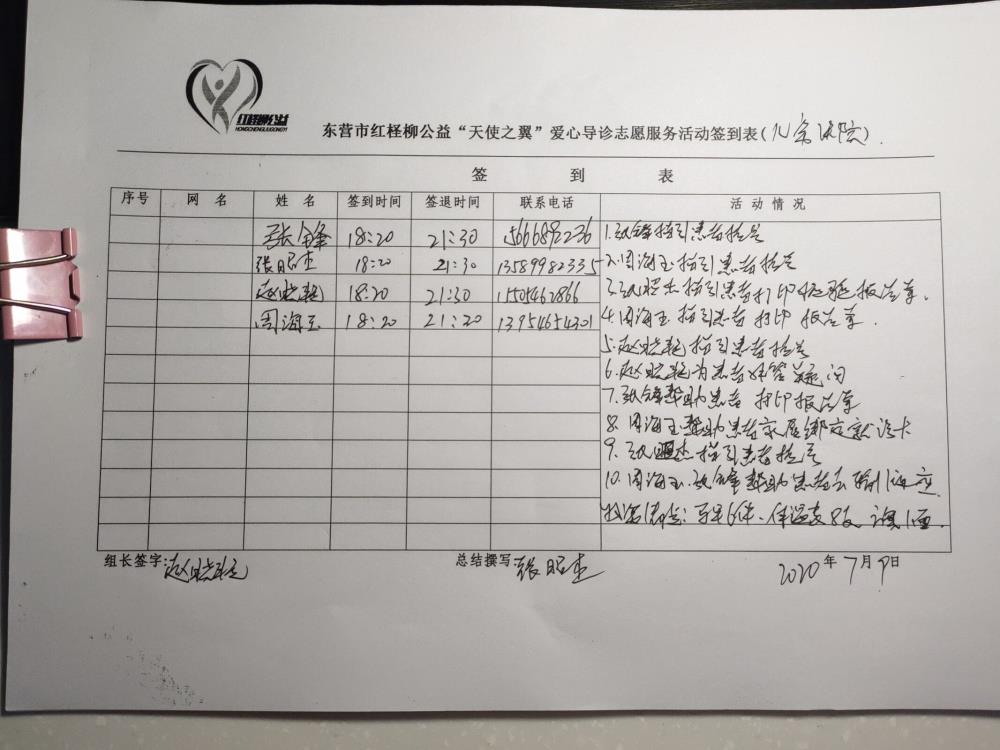 红柽柳公益
HONGCHENGLIUGONGYI
东营市红柽柳公益“天使之翼”爱心导诊志愿服务活动签到表(儿童医院)
签 到 表
序号 网 名 姓 名 签到时间 签退时间 联系电话 活 动 情 况
张锋 18:20 21:30 15666892236 1.张锋指引患者挂号
张昭杰 18:20 21:30 13589982335 2.周海玉指引患者挂号
赵晓艳 18:20 21:30 1505462866 3.张昭杰指引患者打印检验报告单.
周海玉 18:20 21:20 13954654301 4.周海玉指引患者打印报告单.
5.赵晓艳指引患者挂号
6.赵晓艳为患者解答疑问
7.张锋帮助患者打印报告单
8.周海玉帮助患者家属绑定就诊卡
9.张昭杰指引患者挂号
10.周海玉.张锋帮助患者去输液室
组长签字:赵晓艳 总结撰写:张昭杰 2020年7月9日